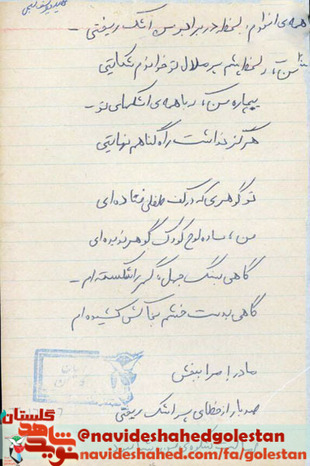 همه‌ی اندوام، لحظه در برابر من اشک ریختی -
من، لحظه پشم پر ملال تو خواندم شکایتی
بیچاره من، که با همه‌ی اشکهای تو -
هرگز نداشت راه گناهم نهایتی
تو گوهری که در کف طفلی فتاده‌ای
من، ساده لوح کودک گوهر ندیده‌ای
گاهی بسنگ جهل، گهر را شکسته‌ام -
گاهی بدست خشم بخاکش کشیده‌ام
مادر مرا ببخش
صد بار از خطای پسر اشک ریختی
گلستان
نوید شاهد
@navideshahedgolestan
navideshahed.com/fa/golestan